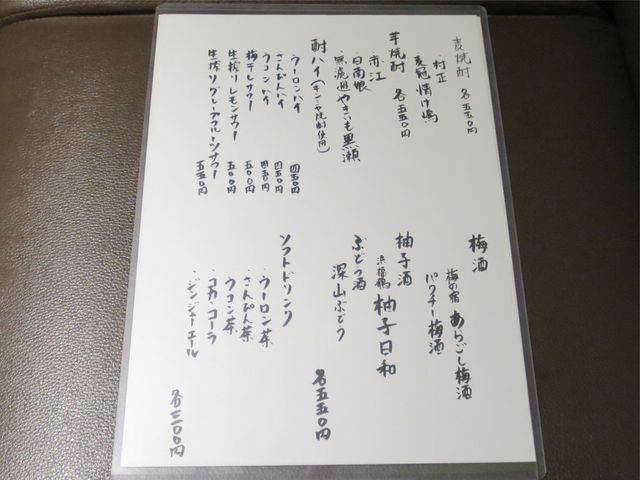 麦焼酎 各五五〇円
・村正
・麦冠 情け嶋
芋焼酎 各五五〇円
・赤江
・日南娘
・無濾過 やきいも黒瀬
酎ハイ(キンミヤ焼酎使用)
・ウーロンハイ 四五〇円
・さんぴんハイ 四五〇円
・ウコンハイ 四五〇円
・梅干しサワー 五〇〇円
・生搾りレモンサワー 五〇〇円
・生搾りグレープフルーツサワー 五五〇円
梅酒
梅の宿 あらごし梅酒
パンチー梅酒
柚子酒
浜福鶴 柚子日和
ぶどう酒
深山ぶどう
各五五〇円
ソフトドリンク
・ウーロン茶
・さんぴん茶
・ウコン茶
・コカ・コーラ
・ジンジャーエール
各三〇〇円